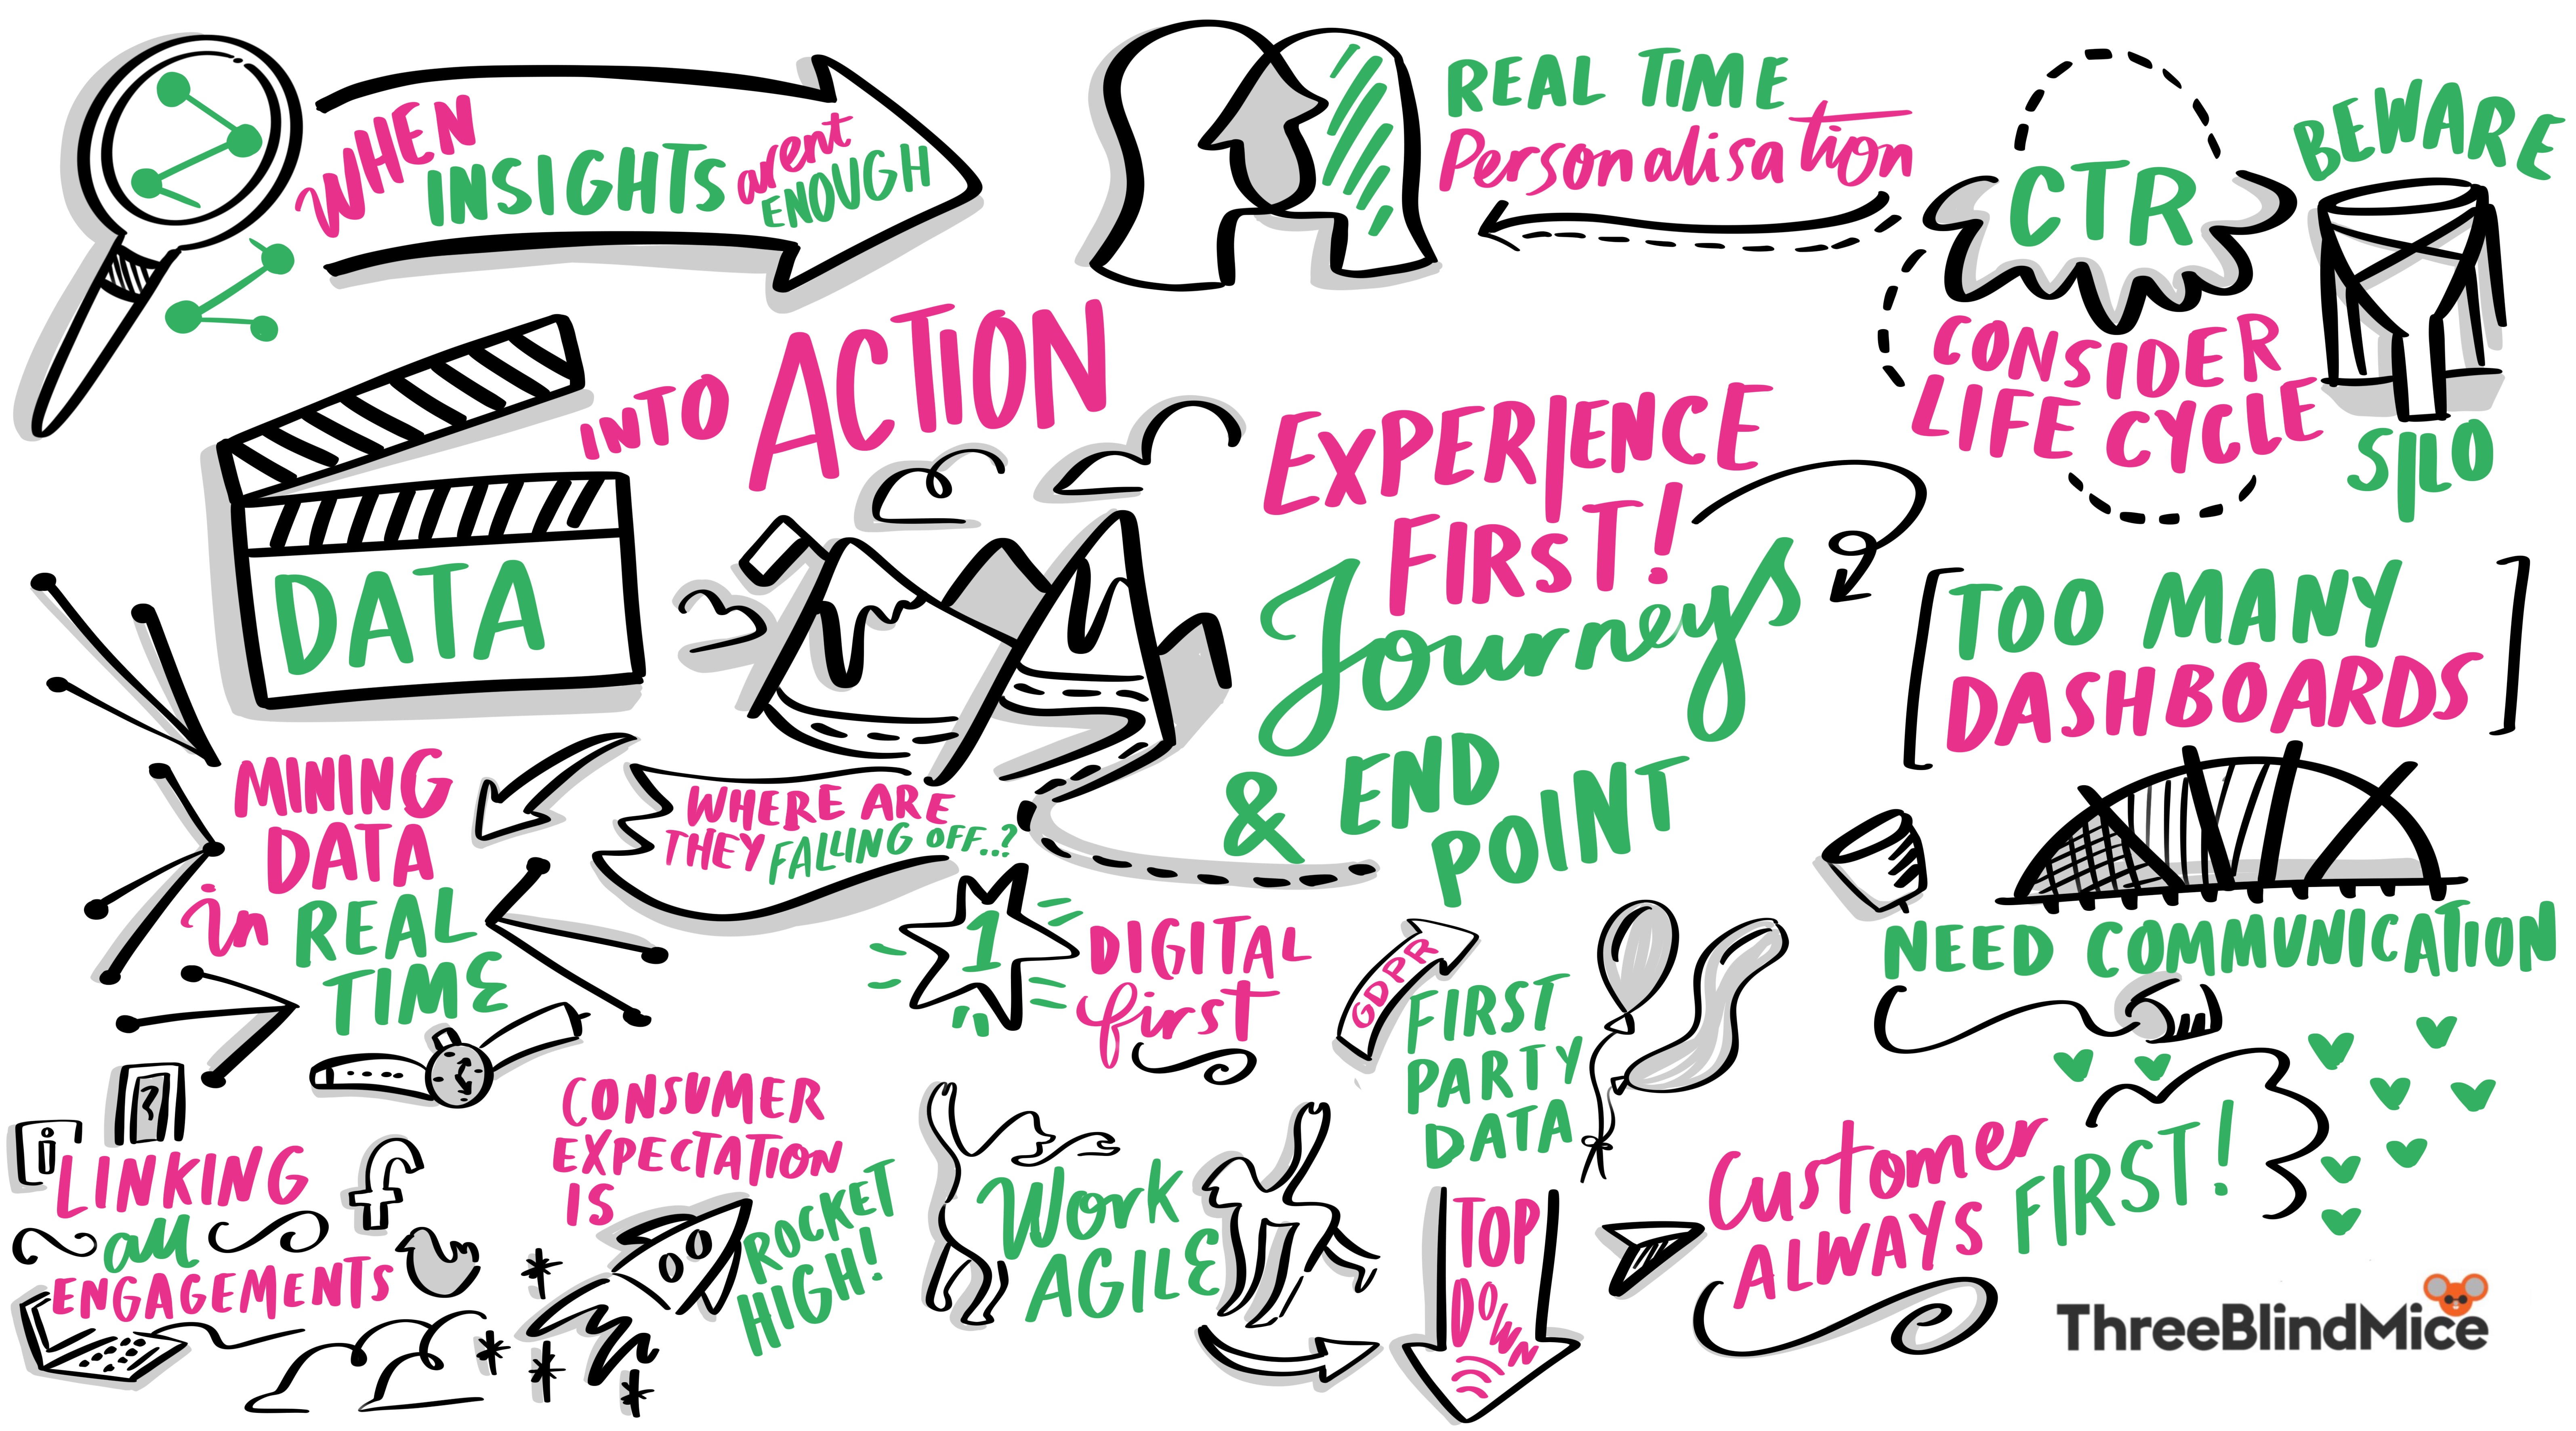 WHEN
INSIGHTS
arent
ENOUGH
REAL TIME
Personalisation
CTR
CONSIDER
LIFE CYCLE
BEWARE
SILO
DATA
INTO ACTION
EXPERIENCE
FIRST!
Journeys
& END
POINT
TOO MANY
DASHBOARDS
NEED COMMUNICATION
MINING
DATA
in REAL
TIME
WHERE ARE
THEY FALLING OFF..?
1
DIGITAL
first
GDPR
FIRST
PARTY
DATA
i
LINKING
all
ENGAGEMENTS
f
CONSUMER
EXPECTATION
IS
ROCKET
HIGH!
Work
AGILE
TOP
DOWN
Customer
ALWAYS FIRST!
ThreeBlindMice